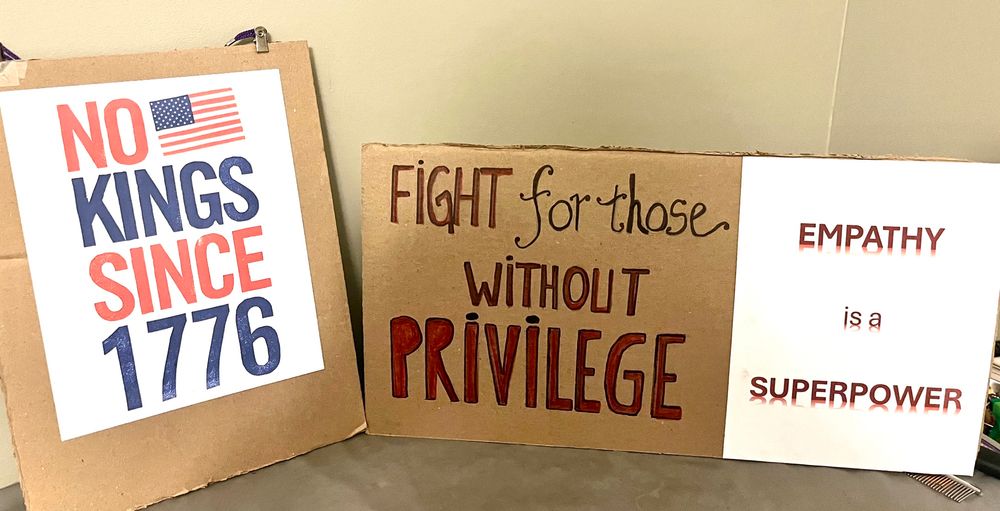 NO
KINGS
SINCE
1776
FiGHT for those
WiTHOUT
PRiViLEGE
EMPATHY
is a
SUPERPOWER